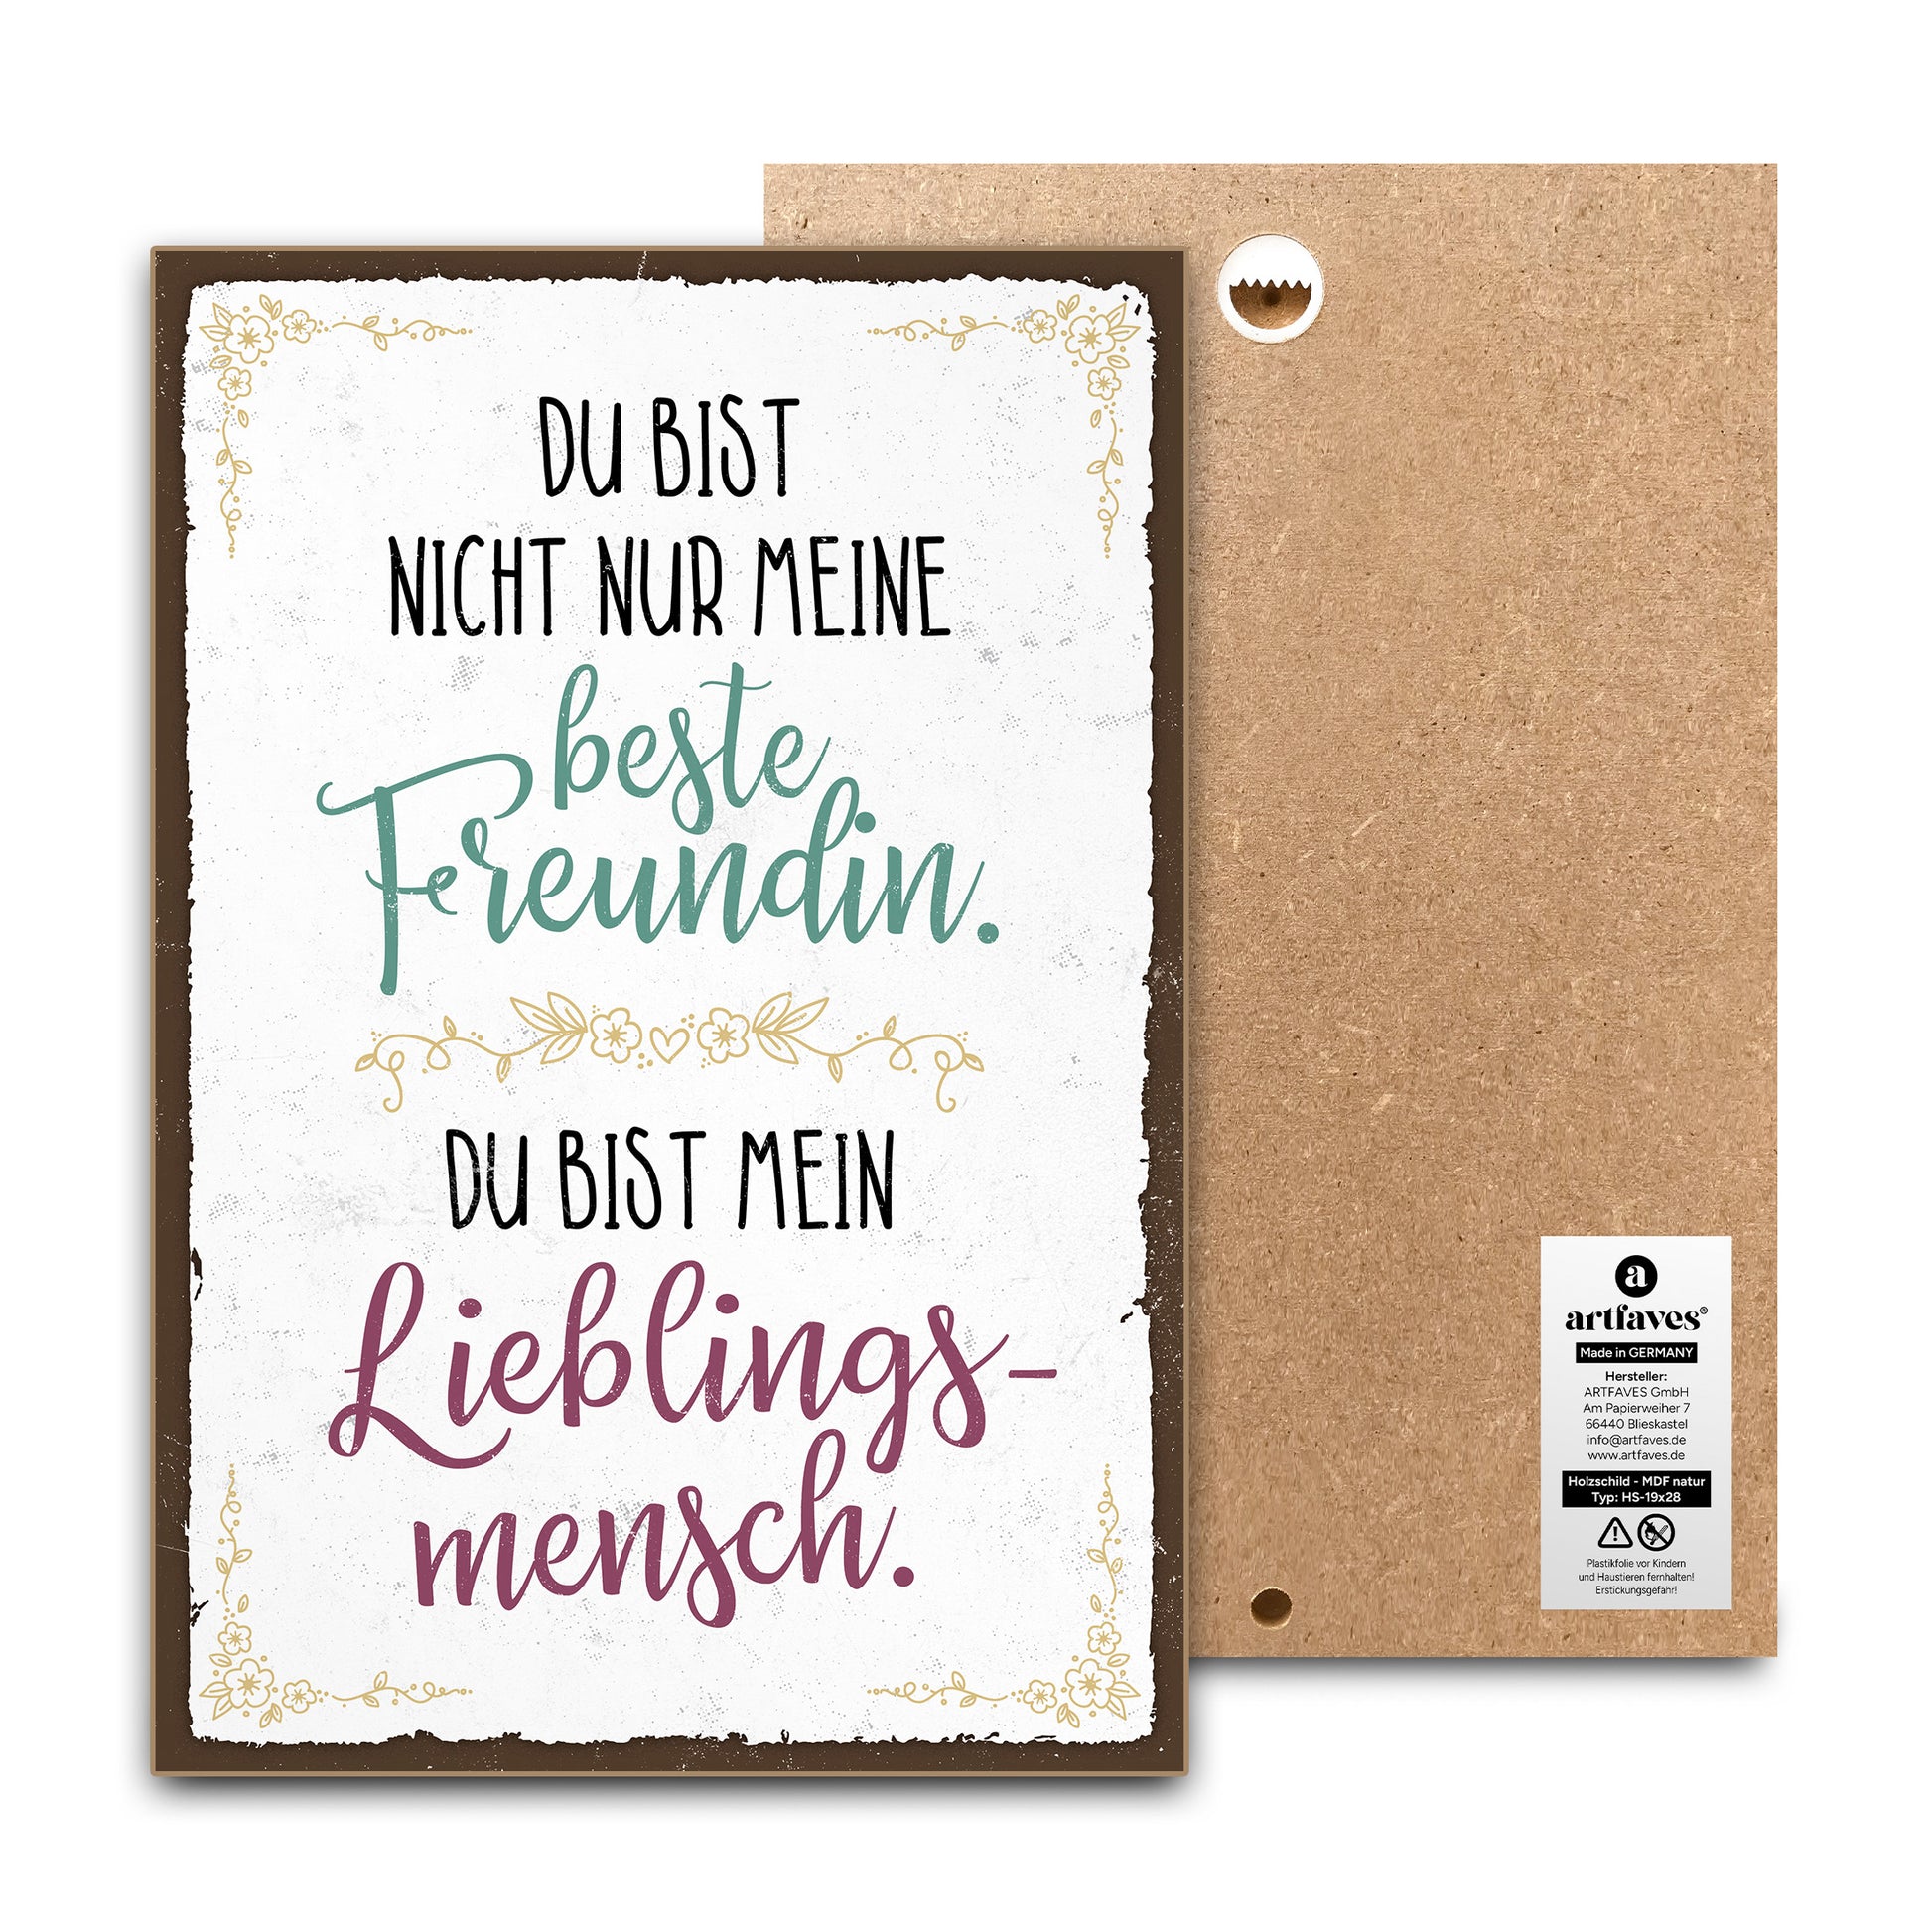 DU BIST
NICHT NUR MEINE
beste
Freundin.
DU BIST MEIN
Lieblings-
mensch.
a
artfaves®
Made in GERMANY
Hersteller:
ARTFAVES GmbH
Am Papierweiher 7
66440 Blieskastel
info@artfaves.de
www.artfaves.de
Holzschild - MDF natur
Typ: HS-19x28
Plastikfolie vor Kindern
und Haustieren fernhalten!
Erstickungsgefahr!